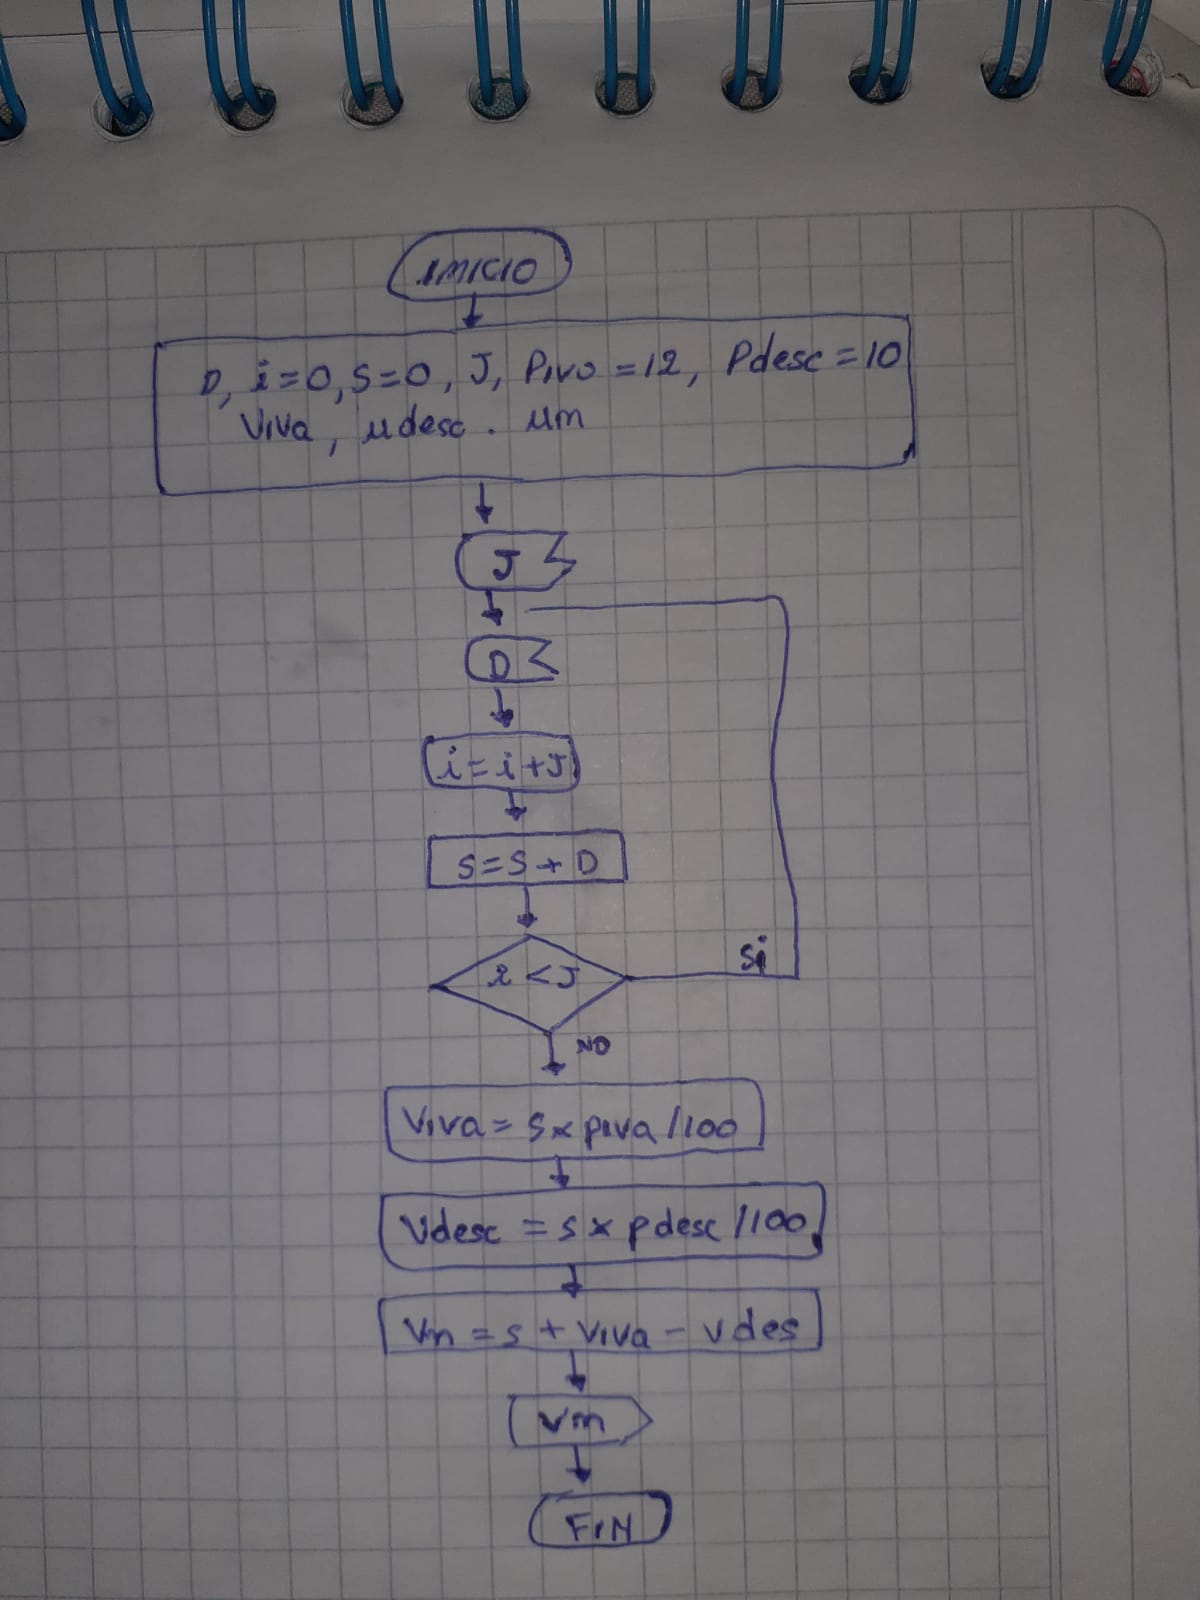 INICIO
D, i=0, S=0, J, Pivo=12, Pdesc=10
Viva, udesc. um
J
D
i=i+J
S=S+D
i<J
Si
NO
Viva=Sxpiva/100
Vdesc=sxpdesc/100
Vn=s+viva-vdes
Vn
FIN